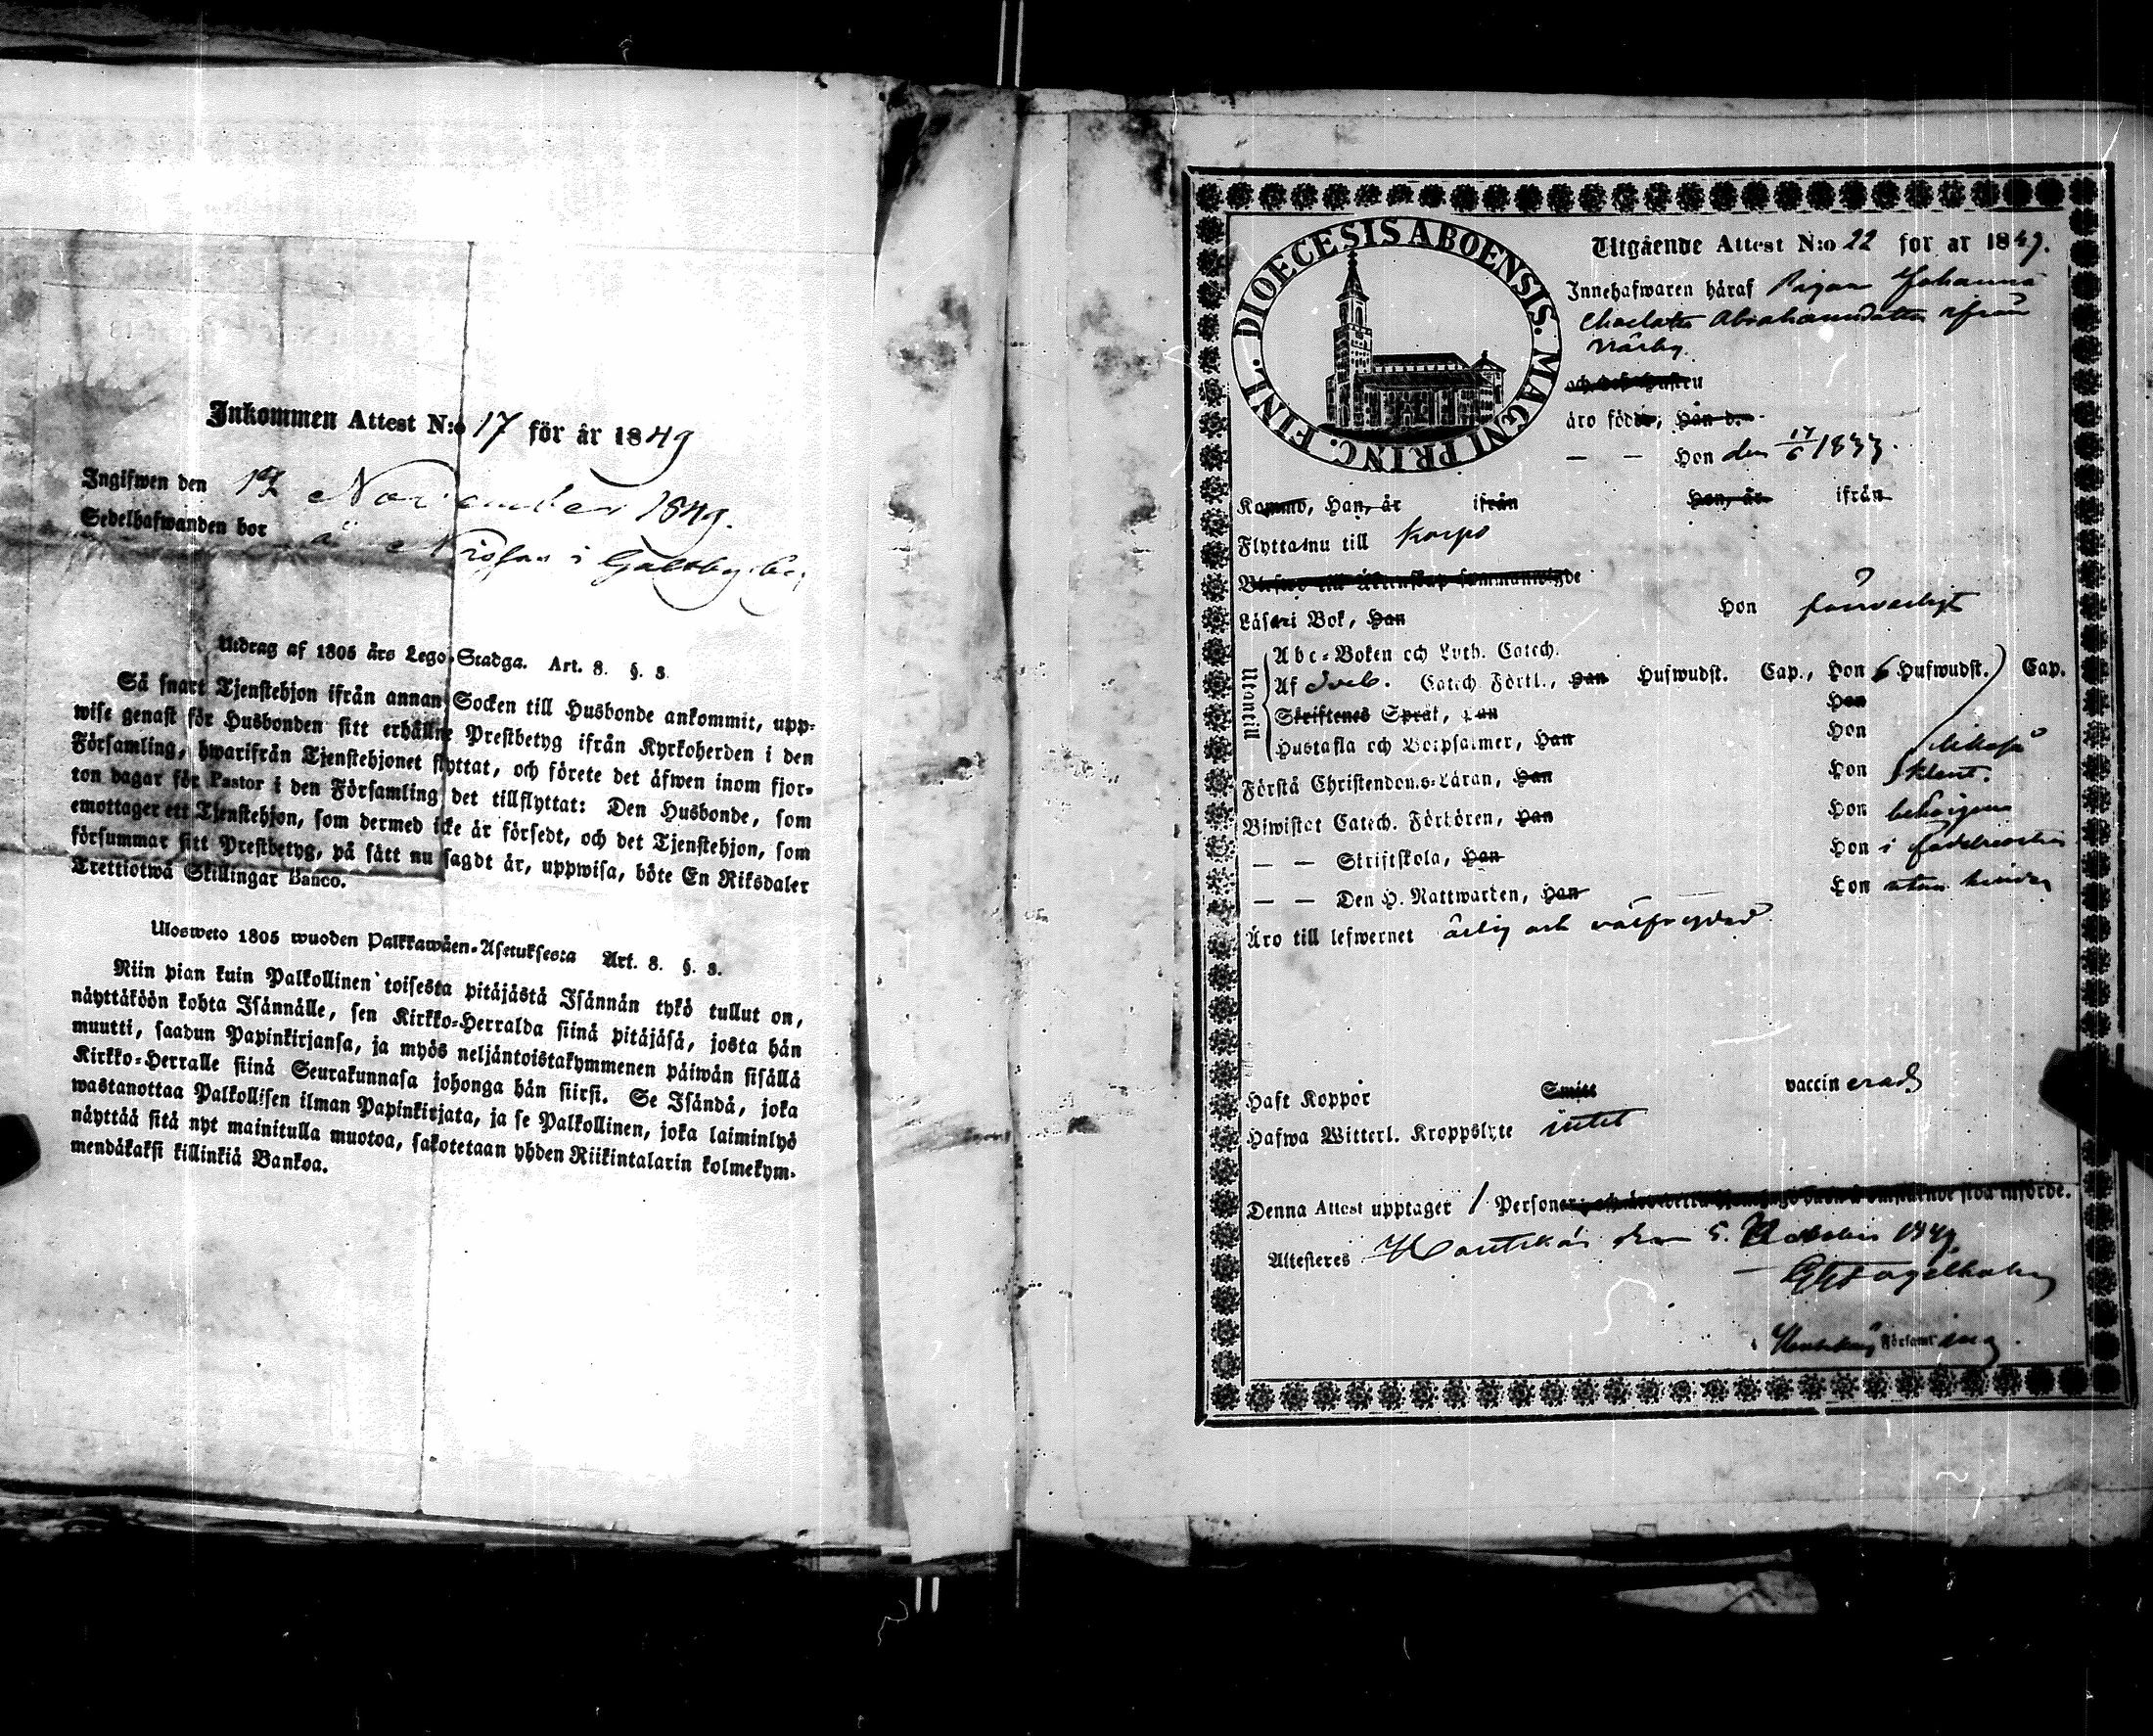 Inkommen Attest N:o 17 för år 1849
Ingifwen den 1 November 1849.
Sedelhafwanden bor i Galtby
Utdrag af 1805 års Lego-Stadga. Art. 8. §. 3.
Så snart Tjenstehjon ifrån annan Socken till Husbonde ankommit, upp-
wise genast för Husbonden sitt erhållne Prestbetyg ifrån Kyrkoherden i den
Församling, hwarifrån Tjenstehjonet flyttat, och förete det äfwen inom fjor-
ton dagar för Pastor i den Församling det tillflyttat: Den Husbonde, som
emottager ett Tjenstehjon, som dermed icke är försedt, och det Tjenstehjon, som
försummar sitt Prestbetyg, på sätt nu sagdt är, uppwisa, böte En Riksdaler
Trettiotwå Skillingar Banco.
Ulosweto 1805 wuoden Palkkawäen-Asetuksesta Art. 8. §. 3.
Niin pian kuin Palkollinen toisesta pitäjästä Isännän tykö tullut on,
näyttäköön kohta Isännälle, sen Kirkko-Herralda siinä pitäjäsä, josta hän
muutti, saadun Papinkirjansa, ja myös neljäntoistakymmenen päiwän sisällä
Kirkko-Herralle siinä Seurakunnasa johonga hän siirsi. Se Isändä, joka
wastanottaa Palkollisen ilman Papinkirjata, ja se Palkollinen, joka laiminlyö
näyttää sitä nyt mainitulla muotoa, sakotetaan yhden Riikintalarin kolmekym-
mendäkaksi killinkiä Bankoa.
DIOECESIS ABOENSIS. MAGNI PRINC. FINL.
Utgående Attest N:o 22 för år 1849.
Innehafwaren häraf Pigan Johanna
Charlotta Abrahamsdotter ifrån
Närby.
och dess Hustru
äro födde, Han d.
— — Hon den 17/6 1833.
Komne, Han, år ifrån Hon, år ifrån
Flytta nu till Korpo
Blefwo till Äktenskap sammanwigde
Läser i Bok, Han Hon försvarligt
Utantill
Abc-Boken och Luth. Catech.
Af Sveb. Catech. Förkl., Han Hufwudst. Cap., Hon 6 Hufwudst. Cap.
Skriftenes Språk, Han Hon
Hustafla och Botpsalmer, Han Hon
Förstå Christendoms-Läran, Han Hon
Biwistat Catech. Förhören, Han Hon behörigen
— — Skriftskola, Han Hon i
— — Den H. Nattwarden, Han Hon utan hinder
Äro till lefwernet ärlig och välfrejdad
Haft Koppor Smitt vaccinerad
Hafwa Witterl. Kroppslyte intet
Denna Attest upptager 1 Personer
Attesteres Houtskär den 5. October 1849.
Fagelholm
i Houtskärs Församling.